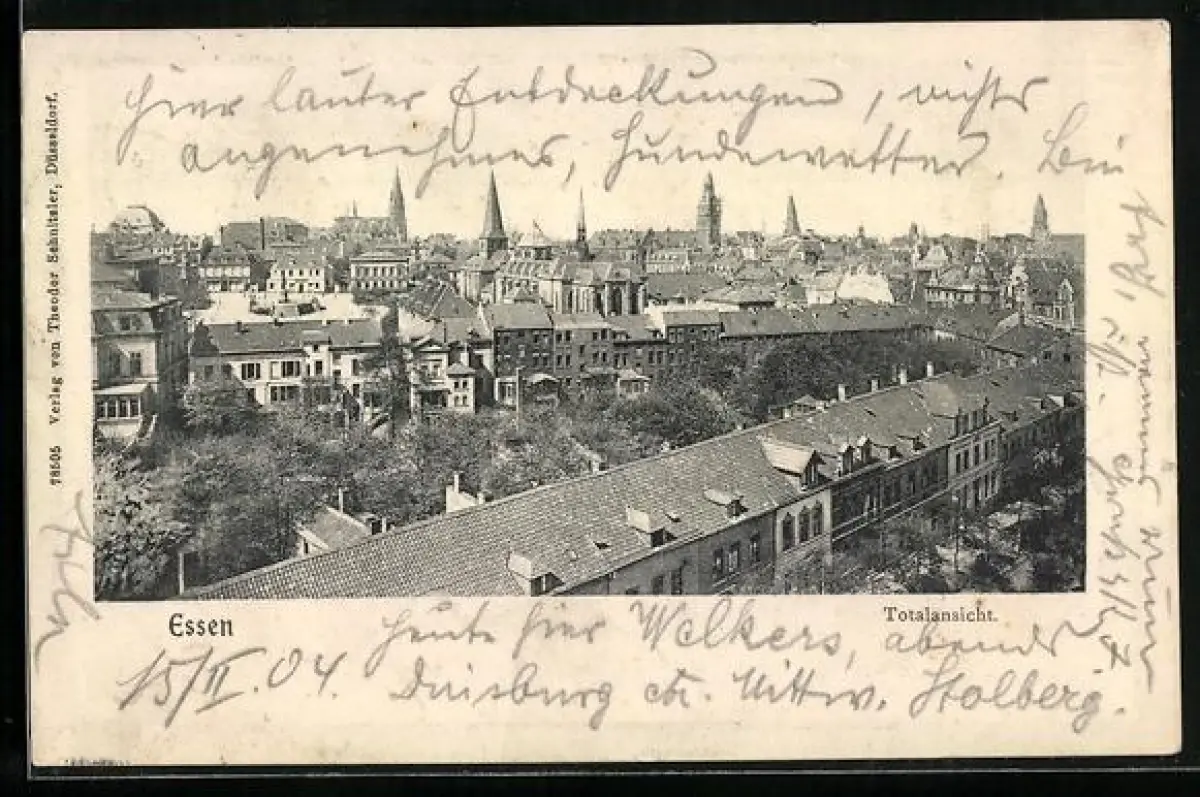 hier lauter Entdeckungen, nichts
angenehmes, Hundewetter. Bin
78505 Verlag von Theodor Schnitzler, Düsseldorf.
Essen
Totalansicht.
15/II. 04. heute hier Welkers, abends
Duisburg etc. Mittw. Stolberg.